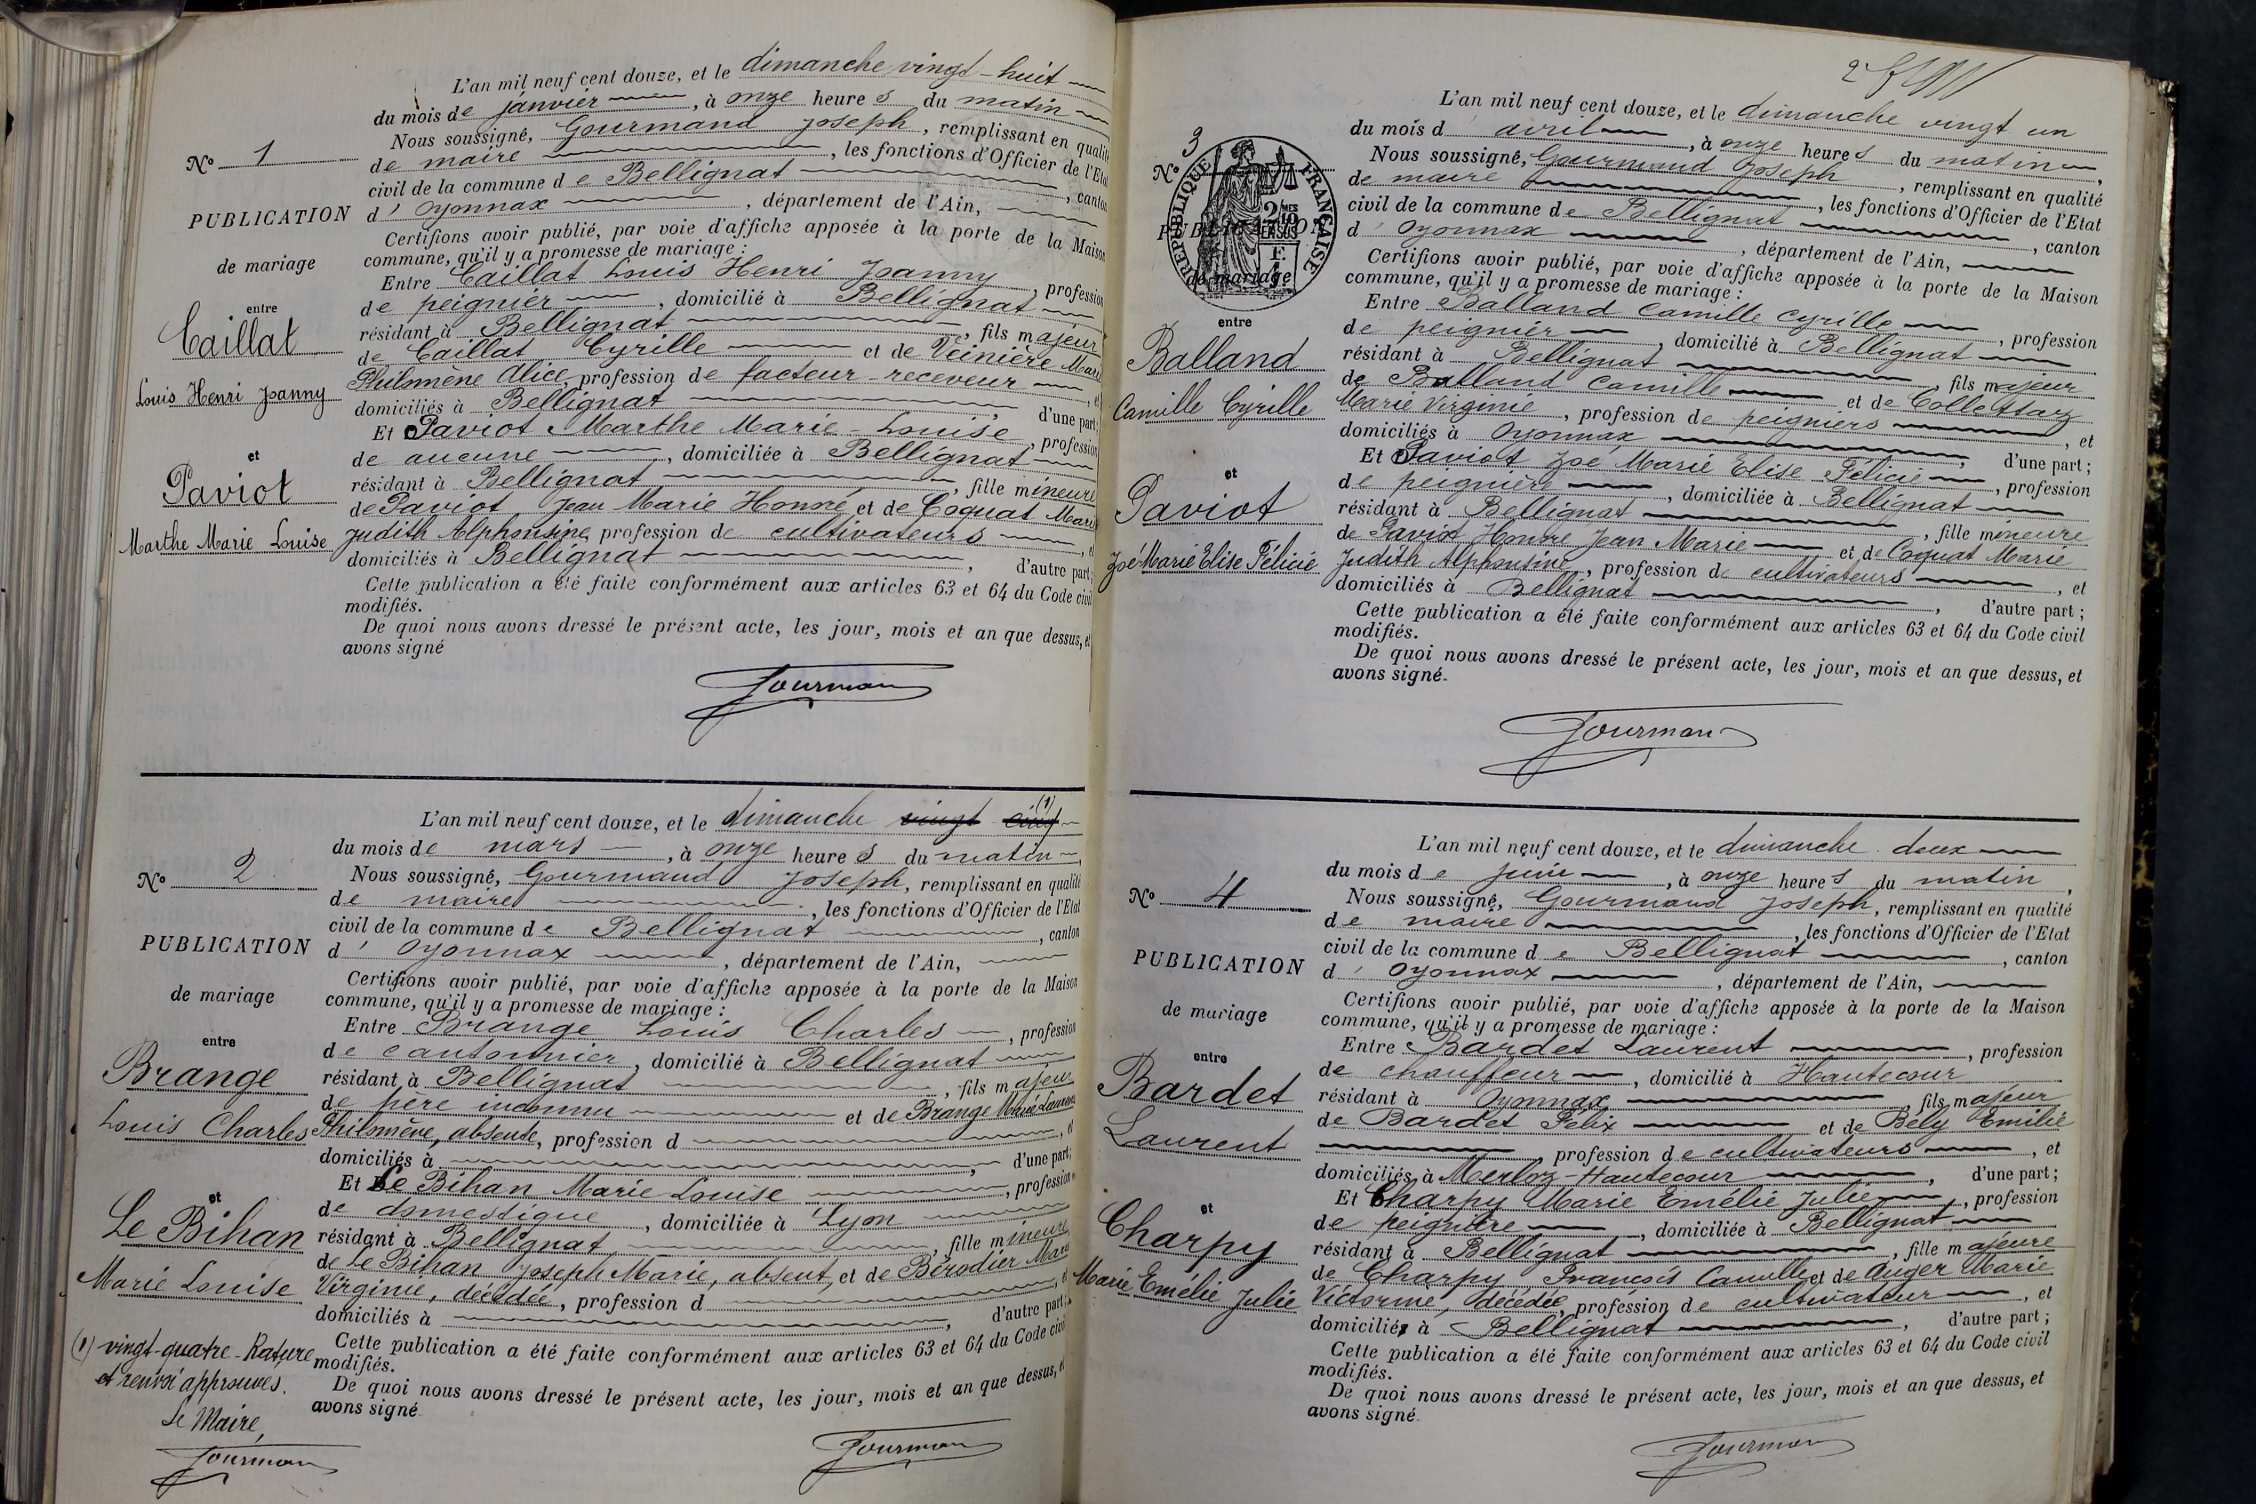 L'an mil neuf cent douze, et le dimanche vingt-huit
du mois de janvier, à onze heures du matin
Nous soussigné, Gourmand Joseph, remplissant en qualité
de maire, les fonctions d'Officier de l'Etat
civil de la commune de Bellignat, canton
d'Oyonnax, département de l'Ain,
Certifions avoir publié, par voie d'affiche apposée à la porte de la Maison
commune, qu'il y a promesse de mariage :
Entre Caillat Louis Henri Joanny, profession
de peignier, domicilié à Bellignat
résidant à Bellignat, fils majeur
de Caillat Cyrille et de Veinière Marie
Philomène Alice, profession de facteur-receveur, et
domiciliés à Bellignat, d'une part;
Et Paviot Marthe Marie-Louise, profession
de aucune, domiciliée à Bellignat
résidant à Bellignat, fille mineure
de Paviot Jean Marie Honoré et de Coquat Marie
Judith Alphonsine, profession de cultivateurs, et
domiciliés à Bellignat, d'autre part;
Cette publication a été faite conformément aux articles 63 et 64 du Code civil
modifiés.
De quoi nous avons dressé le présent acte, les jour, mois et an que dessus, et
avons signé
Gourmand
No 1
PUBLICATION
de mariage
entre
Caillat
Louis Henri Joanny
et
Paviot
Marthe Marie Louise
L'an mil neuf cent douze, et le dimanche vingt cinq (1)
du mois de mars, à onze heures du matin,
Nous soussigné, Gourmand Joseph, remplissant en qualité
de maire, les fonctions d'Officier de l'Etat
civil de la commune de Bellignat, canton
d'Oyonnax, département de l'Ain,
Certifions avoir publié, par voie d'affiche apposée à la porte de la Maison
commune, qu'il y a promesse de mariage :
Entre Brange Louis Charles, profession
de cantonnier, domicilié à Bellignat
résidant à Bellignat, fils majeur
de père inconnu et de Brange Marie
Philomène, absente, profession d, et
domiciliés à, d'une part;
Et Le Bihan Marie Louise, profession
de domestique, domiciliée à Lyon
résidant à Bellignat, fille mineure
de Le Bihan Joseph Marie, absent, et de Bérodier Marie
Virginie, décédée, profession d, et
domiciliés à, d'autre part;
Cette publication a été faite conformément aux articles 63 et 64 du Code civil
modifiés.
De quoi nous avons dressé le présent acte, les jour, mois et an que dessus, et
avons signé.
Gourmand
No 2
PUBLICATION
de mariage
entre
Brange
Louis Charles
et
Le Bihan
Marie Louise
(1) vingt-quatre - Rature
et renvoi approuvés.
Le Maire,
Gourmand
2
L'an mil neuf cent douze, et le dimanche vingt un
du mois d avril, à onze heures du matin,
Nous soussigné, Gourmand Joseph, remplissant en qualité
de maire, les fonctions d'Officier de l'Etat
civil de la commune de Bellignat, canton
d'Oyonnax, département de l'Ain,
Certifions avoir publié, par voie d'affiche apposée à la porte de la Maison
commune, qu'il y a promesse de mariage :
Entre Balland Camille Cyrille, profession
de peignier, domicilié à Bellignat
résidant à Bellignat, fils majeur
de Balland Camille et de Collettaz
Marie Virginie, profession de peigniers, et
domiciliés à Oyonnax, d'une part;
Et Paviot Zoé Marie Elise Félicie, profession
de peignière, domiciliée à Bellignat
résidant à Bellignat, fille mineure
de Paviot Honoré Jean Marie et de Coquat Marie
Judith Alphonsine, profession de cultivateurs, et
domiciliés à Bellignat, d'autre part;
Cette publication a été faite conformément aux articles 63 et 64 du Code civil
modifiés.
De quoi nous avons dressé le présent acte, les jour, mois et an que dessus, et
avons signé.
Gourmand
No 3
REPUBLIQUE FRANÇAISE
PUBLICATION
de mariage
entre
Balland
Camille Cyrille
et
Paviot
Zoé Marie Elise Félicie
L'an mil neuf cent douze, et le dimanche deux
du mois de juin, à onze heures du matin,
Nous soussigné, Gourmand Joseph, remplissant en qualité
de maire, les fonctions d'Officier de l'Etat
civil de la commune de Bellignat, canton
d'Oyonnax, département de l'Ain,
Certifions avoir publié, par voie d'affiche apposée à la porte de la Maison
commune, qu'il y a promesse de mariage :
Entre Bardet Laurent, profession
de chauffeur, domicilié à Hautecour
résidant à Oyonnax, fils majeur
de Bardet Félix et de Bély Emilie
profession de cultivateurs, et
domiciliés à Merloz-Hautecour, d'une part;
Et Charpy Marie Emélie Julie, profession
de peignière, domiciliée à Bellignat
résidant à Bellignat, fille majeure
de Charpy François Camille et de Auger Marie
Victorine, décédée, profession de cultivateur, et
domiciliés à Bellignat, d'autre part;
Cette publication a été faite conformément aux articles 63 et 64 du Code civil
modifiés.
De quoi nous avons dressé le présent acte, les jour, mois et an que dessus, et
avons signé.
Gourmand
No 4
PUBLICATION
de mariage
entre
Bardet
Laurent
et
Charpy
Marie Emélie Julie